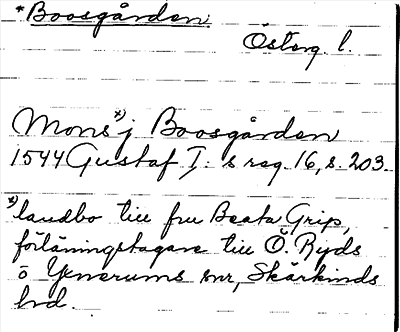 *Boosgården
Österg. l.
Mons*) j Boosgården
1544 Gustaf I:s reg. 16, s. 203.
*) landbo till fru Beata Grip,
förläningstagare till Ö. Ryds
o Yxnerums snr, Skärkinds
hd.